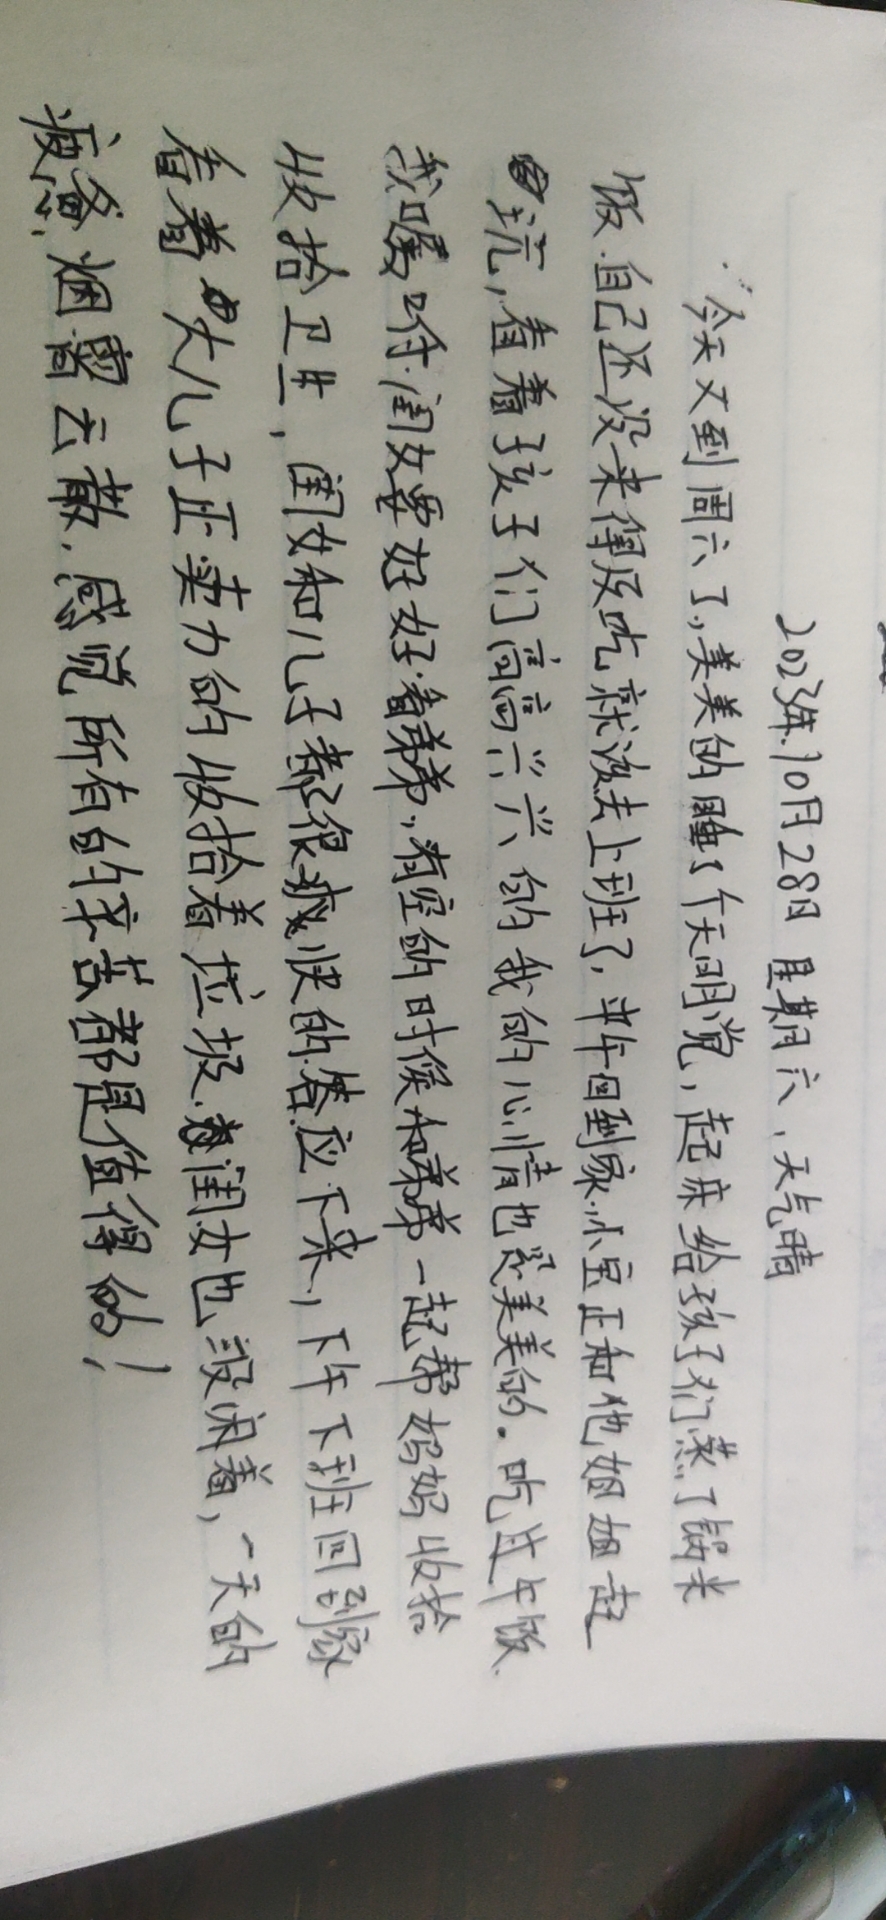 2023年.10月28日 星期六，天气晴
今天又到周六了，美美的睡了个天明觉，起床给孩子们蒸了锅米
饭.自己还没来得及吃就该去上班了，中午回到家.小宝正和他姐姐一起
玩，看着孩子们高高兴兴的我的心情也是美美的。吃过午饭.
我嘱咐.闺女要好好看弟弟，有空的时候和弟弟一起帮妈妈收拾
收拾卫生，闺女和儿子都很爽快的答应下来，下午下班回到家
看着大儿子正卖力的收拾着垃圾.闺女也没闲着，一天的
疲惫.烟雾云散.感觉所有的辛苦都是值得的！